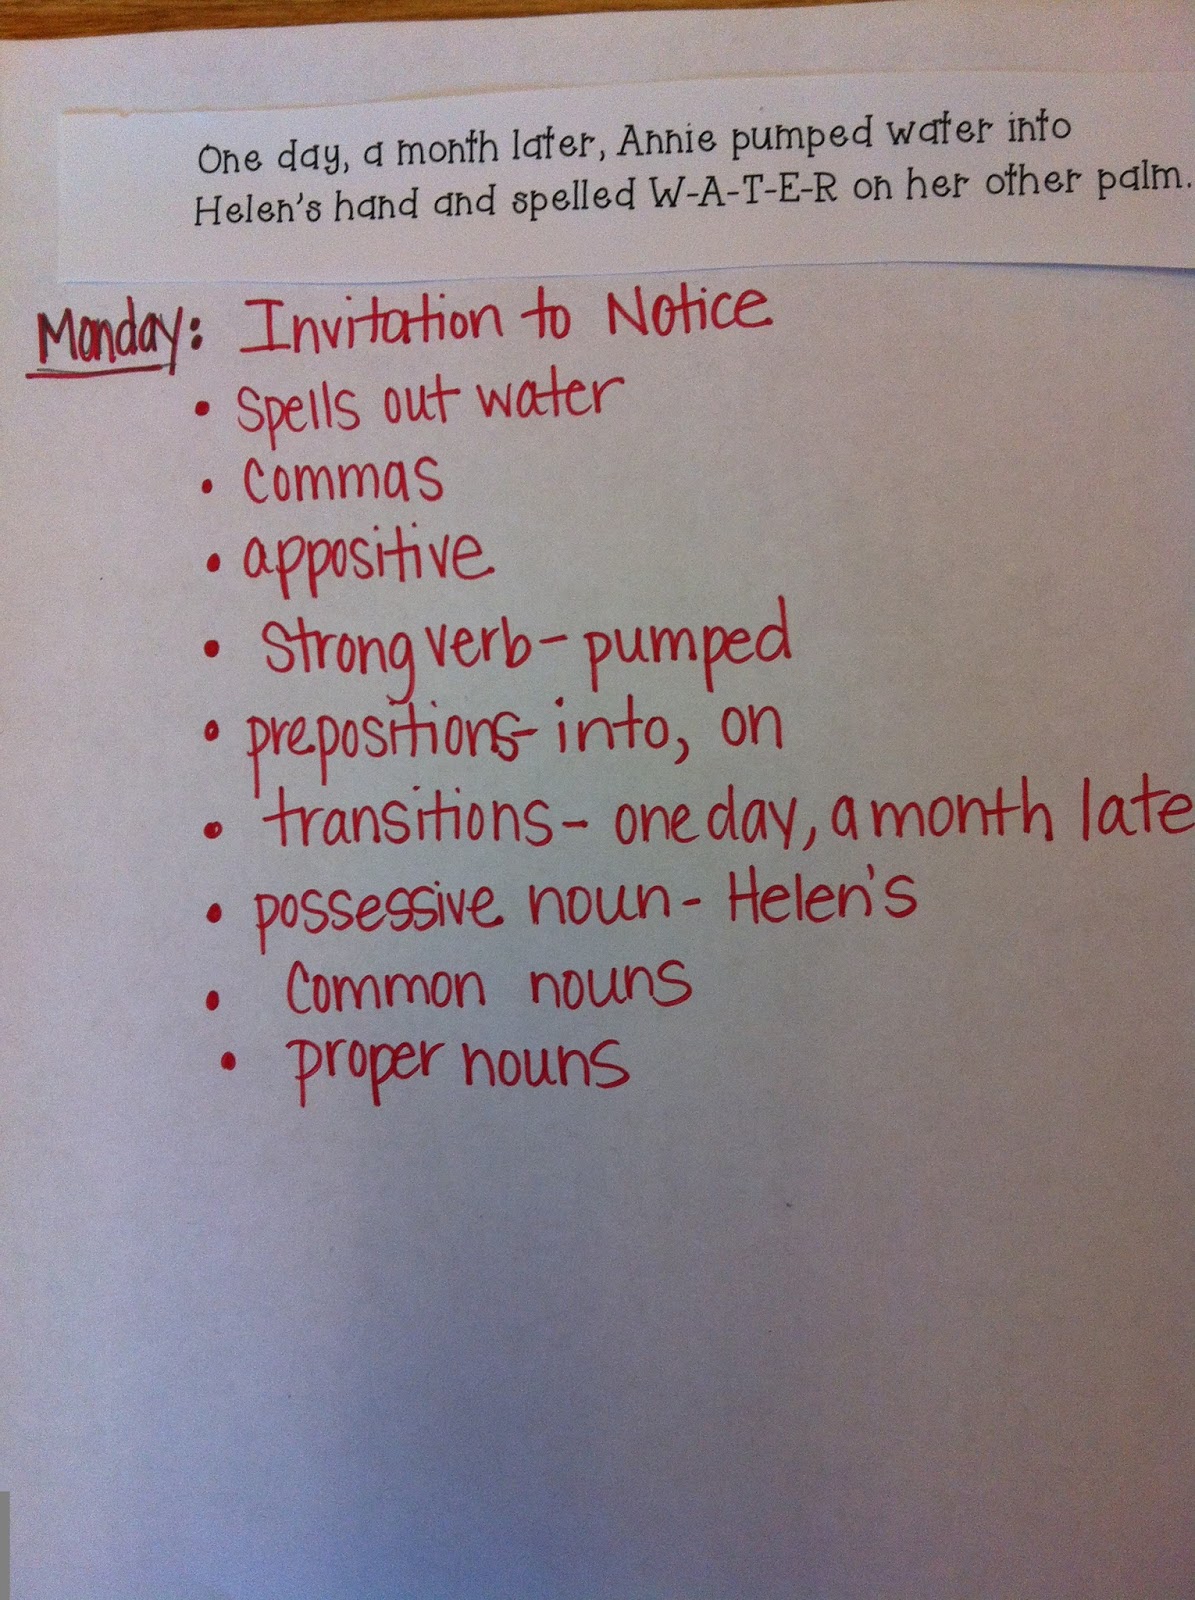 One day, a month later, Annie pumped water into
Helen's hand and spelled W-A-T-E-R on her other palm.
Monday: Invitation to Notice
• Spells out water
• Commas
• appositive
• Strong verb - pumped
• prepositions - into, on
• transitions - one day, a month late
• possessive noun - Helen's
• Common nouns
• proper nouns